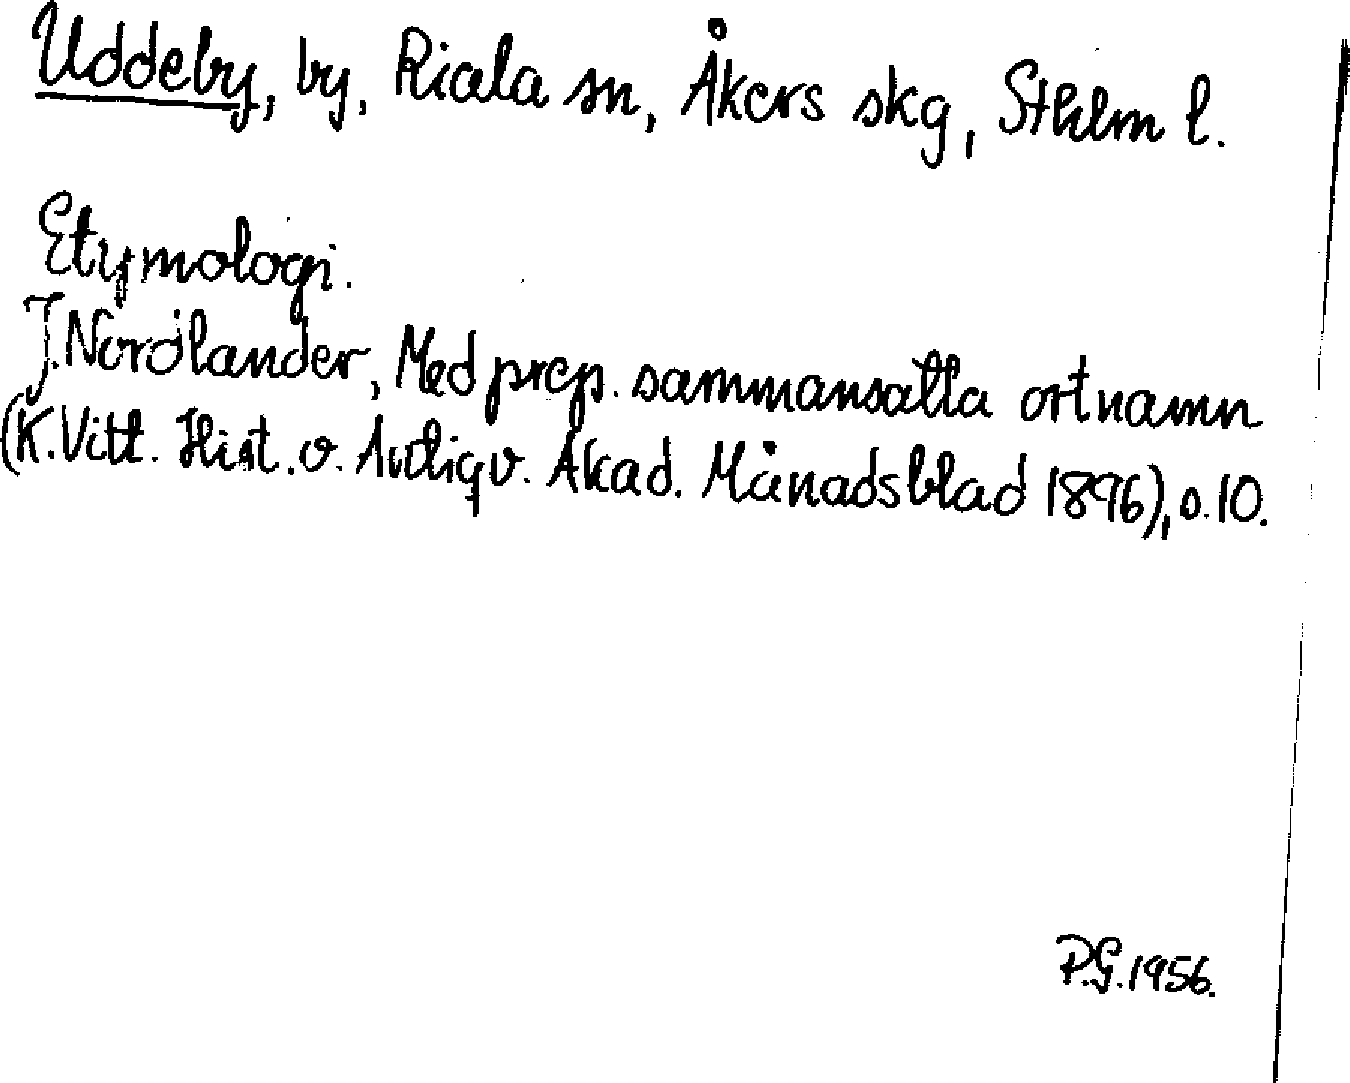 Uddeby, by, Riala sn, Åkers skg, Sthlm l.
Etymologi.
J. Nordlander, Med prep. sammansatta ortnamn
(K. Vitt. Hist. o. Antiqv. Akad. Månadsblad 1896), s. 10.
P.G. 1956.